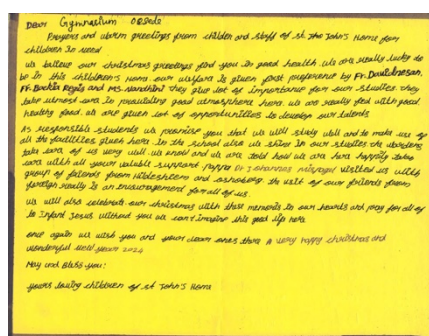 Dear Gymnasium Oesede
Prayers and warm greetings from childen and staff of st the John's Home for
children in need.
we believe our christmas greetings find you in good health. we are really lucky to
be in this children's home. our welfare is given first preference by Fr. Davidnesan,
Fr. Baskis Regis and Ms. Nandhini they give lot of importance for our studies. they
take utmost care in providing good atmosphere here. we are really fed with good
healthy food. we are given lot of opportunities to develop our talents
As responsible students we promise you that we will study well and to make use of
all the facilities given here. In the school also we shine in our studies. the wardens
take care of us very well. we know and we are told how we are here happily taken
care with all your valuable support. Pappa Dr Johannas visited us with
group of friends from Hildesheim and . the visit of our friends from
foreign really is an encouragement for all of us.
we will also celebrate our christmas with these memories in our hearts and pray for all of
to Infant Jesus without you we can't imagine this good life here
once again we wish you and your dear ones there a very happy christmas and
wonderful New year 2024
May God Bless you:
yours loving children of st John's Home